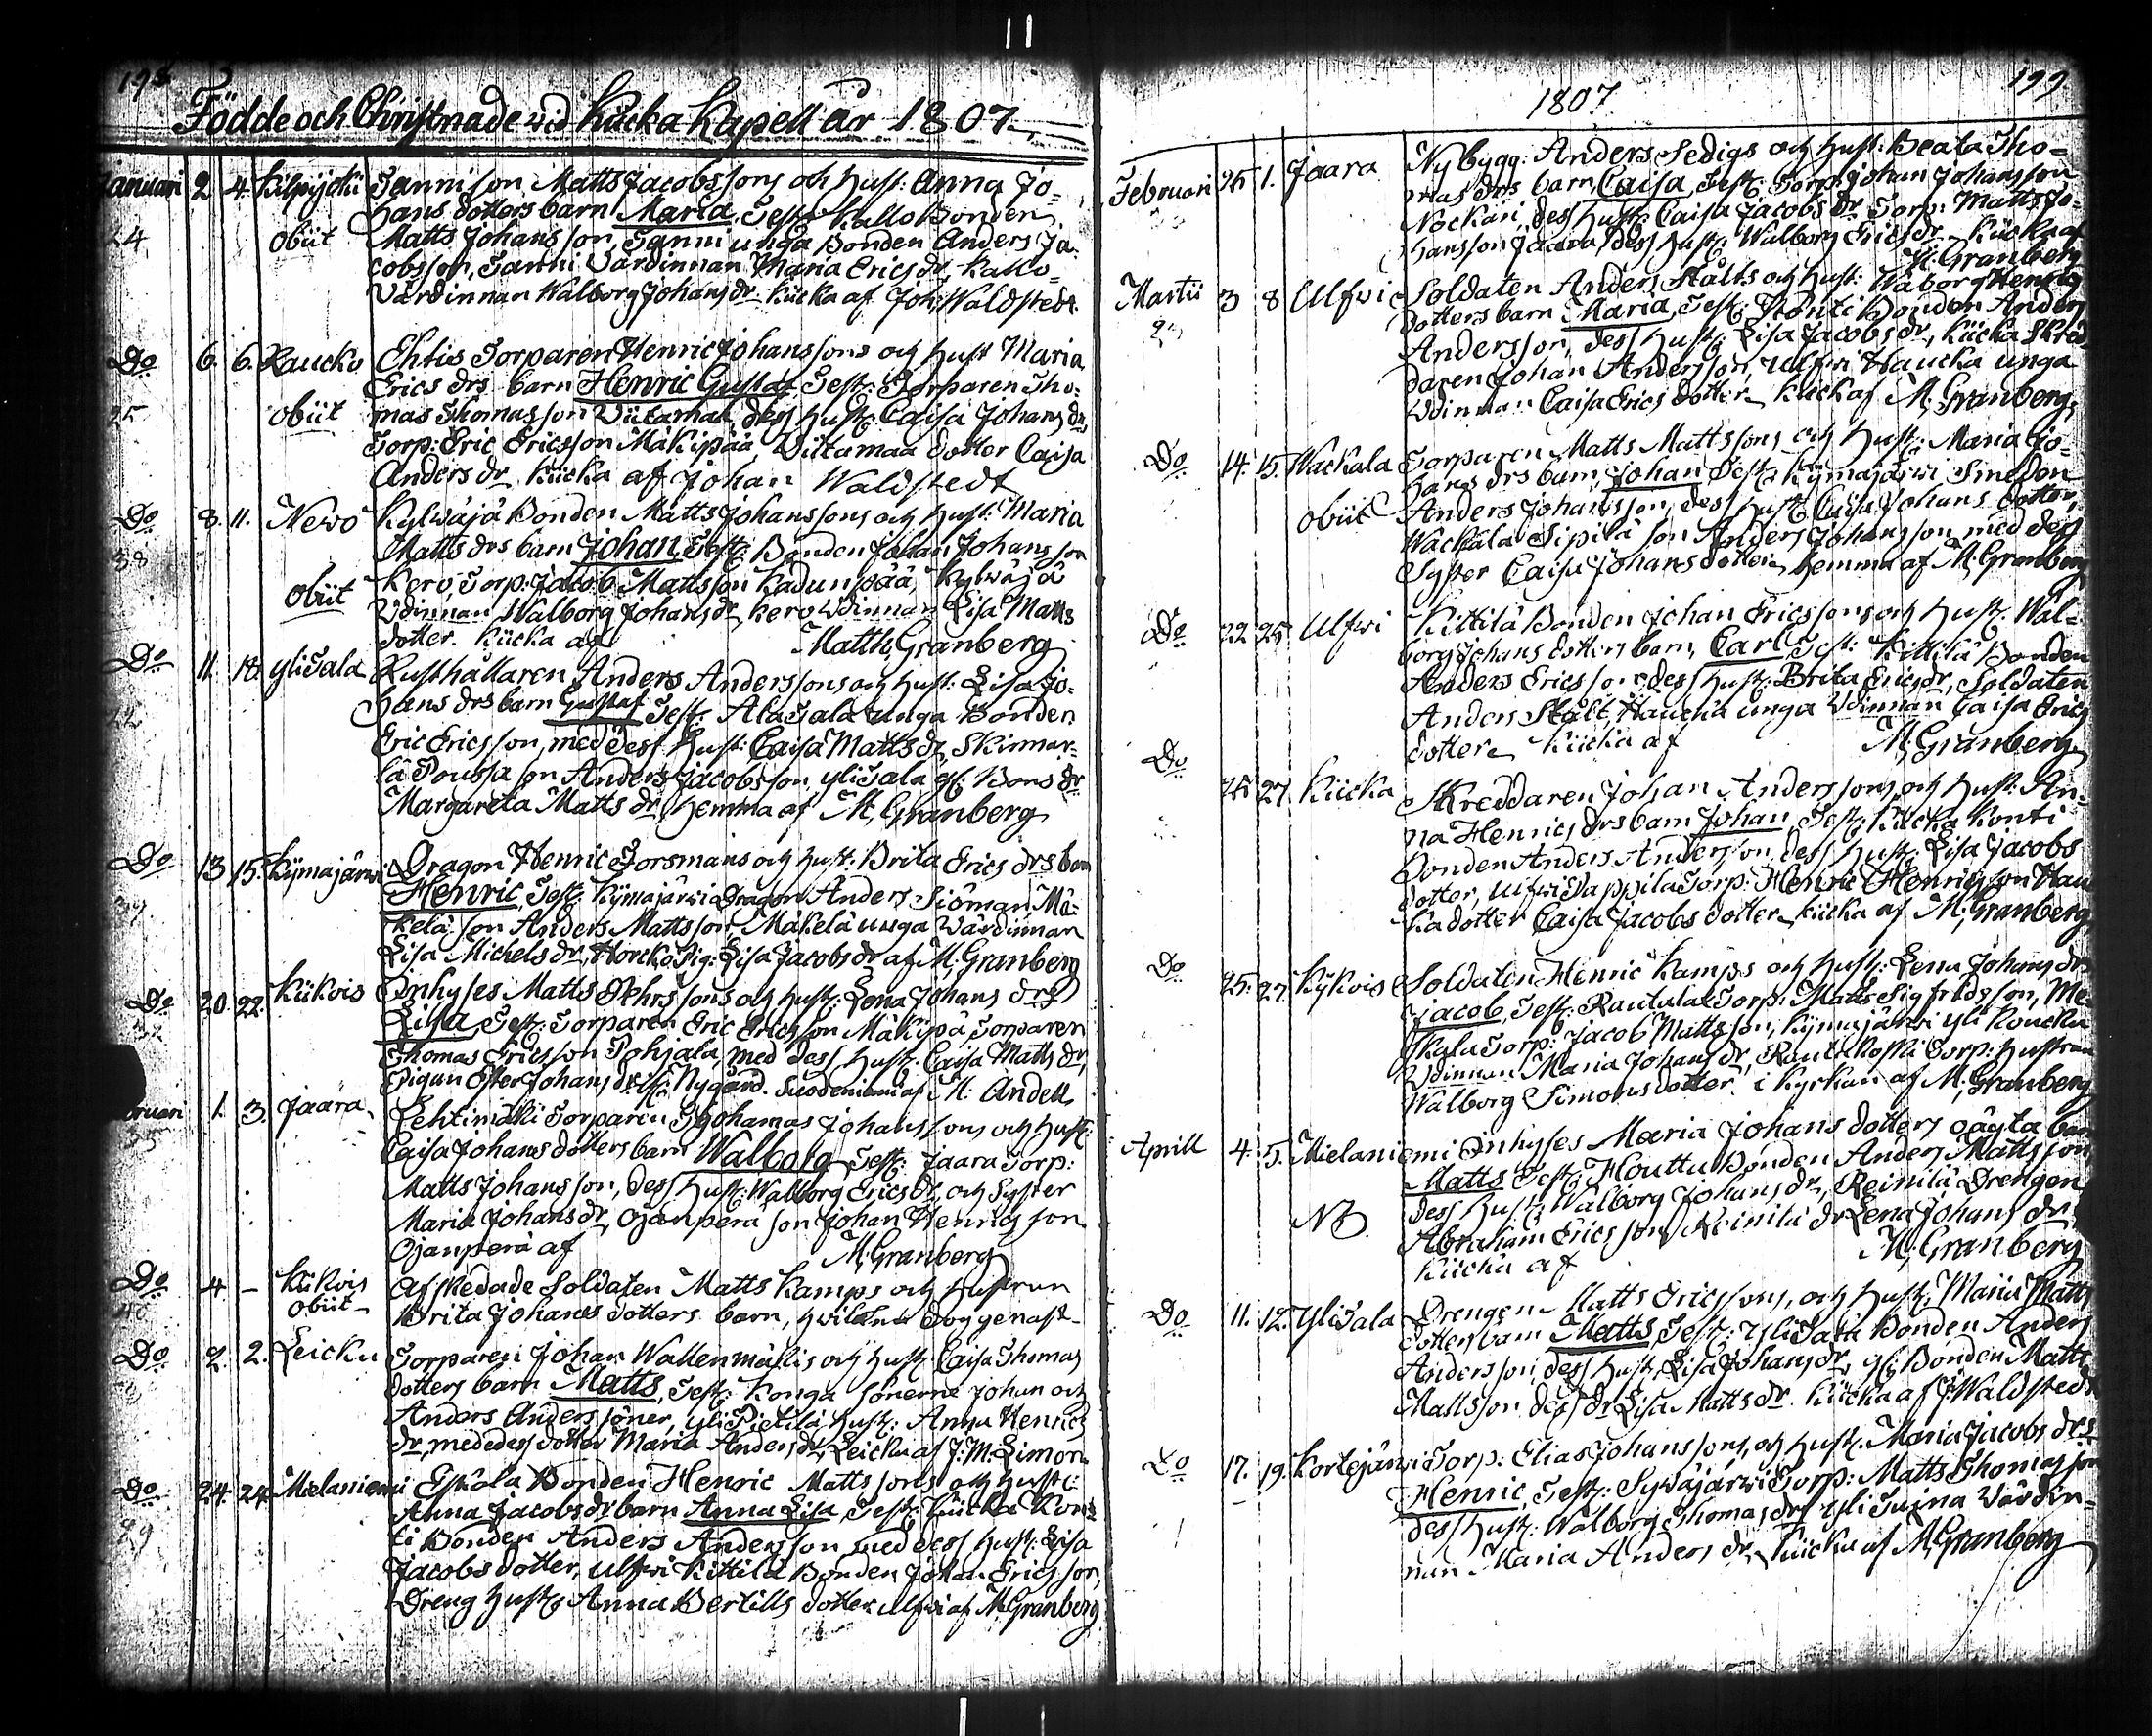 198
Födde och Christnade vid Kiicka Kapell år 1807
Januari 2 4. Kilpijoki Sanni son Matts Jacobssons och hust: Anna Jo=
hans dotters barn Maria, Test: Kallo Bonden
24 obiit Matts Johansson, Sanni unga Bonden Anders Ja=
cobsson, Sanni Värdinnan Maria Erics dr, Kallo=
Värdinnan Walborg Johans dr Kiicka af Joh: Waldstedt.
Do 6. 6. Raucko Ehtis Torparen Henric Johanssons och hust Maria
Erics drs barn Henric Gustaf Test: Torparen Tho=
25 obiit mas Thomasson Viitamaa dess hust: Caisa Johans dr,
Torp: Eric Ericsson Mäkipää, Viitamaa dotter Caisa
Anders dr Kiicka af Johan Waldstedt
Do 8. 11. Newo Kylwäjä Bonden Matts Johanssons och hust: Maria
38 Matts drs barn Johan, Test: Bonden Johan Johansson
Kero, Torp: Jacob Mattsson Kadunpää, Kylwäjä
obiit Vdinnan Walborg Johans dr, Kero Vdinnan Lisa Matts
dotter. Kiicka af Matth: Granberg
Do 11. 18. YliSala Rusthållaren Anders Anderssons och hust: Lisa Jo=
hans drs barn Gustaf Test: AlaSala unga Bonden
Eric Ericsson, med dess hust: Caisa Matts dr, Skinnar=
lä Poussa son Anders Jacobsson, YliSala gl: Bons dr
Margareta Matts dr, hemma af M: Granberg
Do 13 15. Kijmajärwi Dragon Henric Forsmans och hust: Brita Erics drs barn
Henric, Test: Kijmajärwi Dragon Anders Siöman, Mä=
kelä son Anders Mattsson, Mäkelä unga Värdinnan
Lisa Michels dr, Horcko Pig: Lisa Jacobs dr af M: Granberg
Do 20. 22. Kiikois Inhyses Matts Pehrssons och hust: Lena Johans drs
Lisa Test: Torparen Eric Ericsson Mäkipä Torparen
Thomas Ericsson Pohjala, med dess hust: Caisa Matts dr,
Pigan Ester Johans dr: if: Nygård. Suodeniemi af M: Andell
Februari 1. 3. Jaara Lehtimäki Torparen Thomas Johanssons och hust:
Caisa Johans dotters barn Walborg Test: Jaara Torp:
Matts Johansson, dess hust: Walborg Erics dr, och Syster
Maria Johans dr, Ojanperä son Johan Henricsson
Ojanperä af M: Granberg
Do 4 – Kiikois Afskedade Soldaten Matts Kamps och hustrun
obiit Brita Johans dotters barn, hvilken doggenast
Do 2. 2. Leicku Torparen Johan Wallenmäkis och hust: Caisa Thomas
dotters barn Matts, Test: Konga sönerne Johan och
Anders Anders söner, YliPietilä hust: Anna Henrics
dr, med dess dotter Maria Anders dr, Leicku af J: M: Limon
Do 24. 24 Mielaniemi Eskola Bonden Henric Mattssons och hust:
29 Anna Jacobs dr barn Anna Lisa, Test: Kiicka Kon=
ti Bonden Anders Andersson med dess hust: Lisa
Jacobs dotter, Ulfwi Kittilä Bonden Johan Ericsson,
Dreng hust: Anna Bertills dotter Ulfwi af M: Granberg
199
1807
Februari 25 1. Jaara Nybygg: Anders Sedigs och hust: Beata Tho=
mas drs barn, Caisa, Test: Torp: Johan Johansson
Nockari, dess hust: Caisa Jacobs dr Torp: Matts Jo=
hansson Jaara, dess hust: Walborg Erics dr – Kiicka af
M: Granberg
Martii 3 8 Ulfwi Soldaten Anders Stålts och hust: Walborg Henrics
dotters barn Maria, Test: Konti Bonden Anders
Andersson, dess hust: Lisa Jacobs dr, Kiicka Skred=
daren Johan Andersson, Ulfwi Haucka unga
Vdinnan Caisa Erics dotter – Kiick af M: Granberg
Do 14. 15. Wackala Torparen Matts Mattssons och hust: Maria Jo=
hans drs barn, Johan Test: Kijmajärwi Smeden
obiit Anders Johansson, dess hust: Caisa Johans dotter,
Wackala Sipilä son Anders Johansson, med dess
Syster Caisa Johans dotter, hemma af M: Granberg
Do 22 25 Ulfwi Kittilä Bonden Johan Ericssons och hust: Wal=
borg Johans dotters barn, Carl, Test: Kittilä Bonden
Anders Ericsson, dess hust: Brita Erics dr, Soldaten
Anders Stålt, Haucka unga Vdinnan Caisa Erics
dotter. Kiicka af M: Granberg
Do 25 27. Kiicka Skreddaren Johan Anderssons, och hust: An=
na Henrics drs barn Johan, Test: Kiicka Konti
Bonden Anders Andersson, dess hust: Lisa Jacobs
dotter, Ulfwi Tappila Torp: Henric Henricsson Hau
ka dotter Caisa Jacobs dotter, Kiicka af M: Granberg
Do 25. 27. Kijkois Soldaten Henric Kamps och hust: Lena Johans drs
Jacob, Test: Rautula Torp: Matts Sigfridsson, Me=
skala Torp: Jacob Mattsson, Kijmajärwi Yli Koucku
Vdinnan Maria Johans dr, Rautikoski Torp: hustrun
Walborg Simons dotter. i Kyrkan af M: Granberg
Aprill 4. 5. Mielaniemi Inhyses Maria Johans dotters oägta barn
Matts Test: Houttu Bonden Anders Mattsson,
NB. dess hust: Walborg Johans dr, Reinilä Drengen
Abraham Ericsson, Reinilä dr Lena Johans dr.
Kiicka af M: Granberg
Do 11. 12. YliSala Drengen Matts Ericssons, och hust: Maria Matts
dotters barn Matts, Test: YliSala Bonden Anders
Andersson, dess hust: Lisa Johans dr, gl: Bonden Matts
Mattsson dess dr Lisa Matts dr Kiicka af J: Waldstedt
Do 17. 19. Kortejärwi Torp: Elias Johanssons, och hust: Maria Jacobs drs
Henric, Test: Sywäjärwi Torp: Matts Thomasson
dess hust: Walborg Thomas dr, Yli Tujna Värdin=
nan Maria Anders dr, Kiicka af M: Granberg